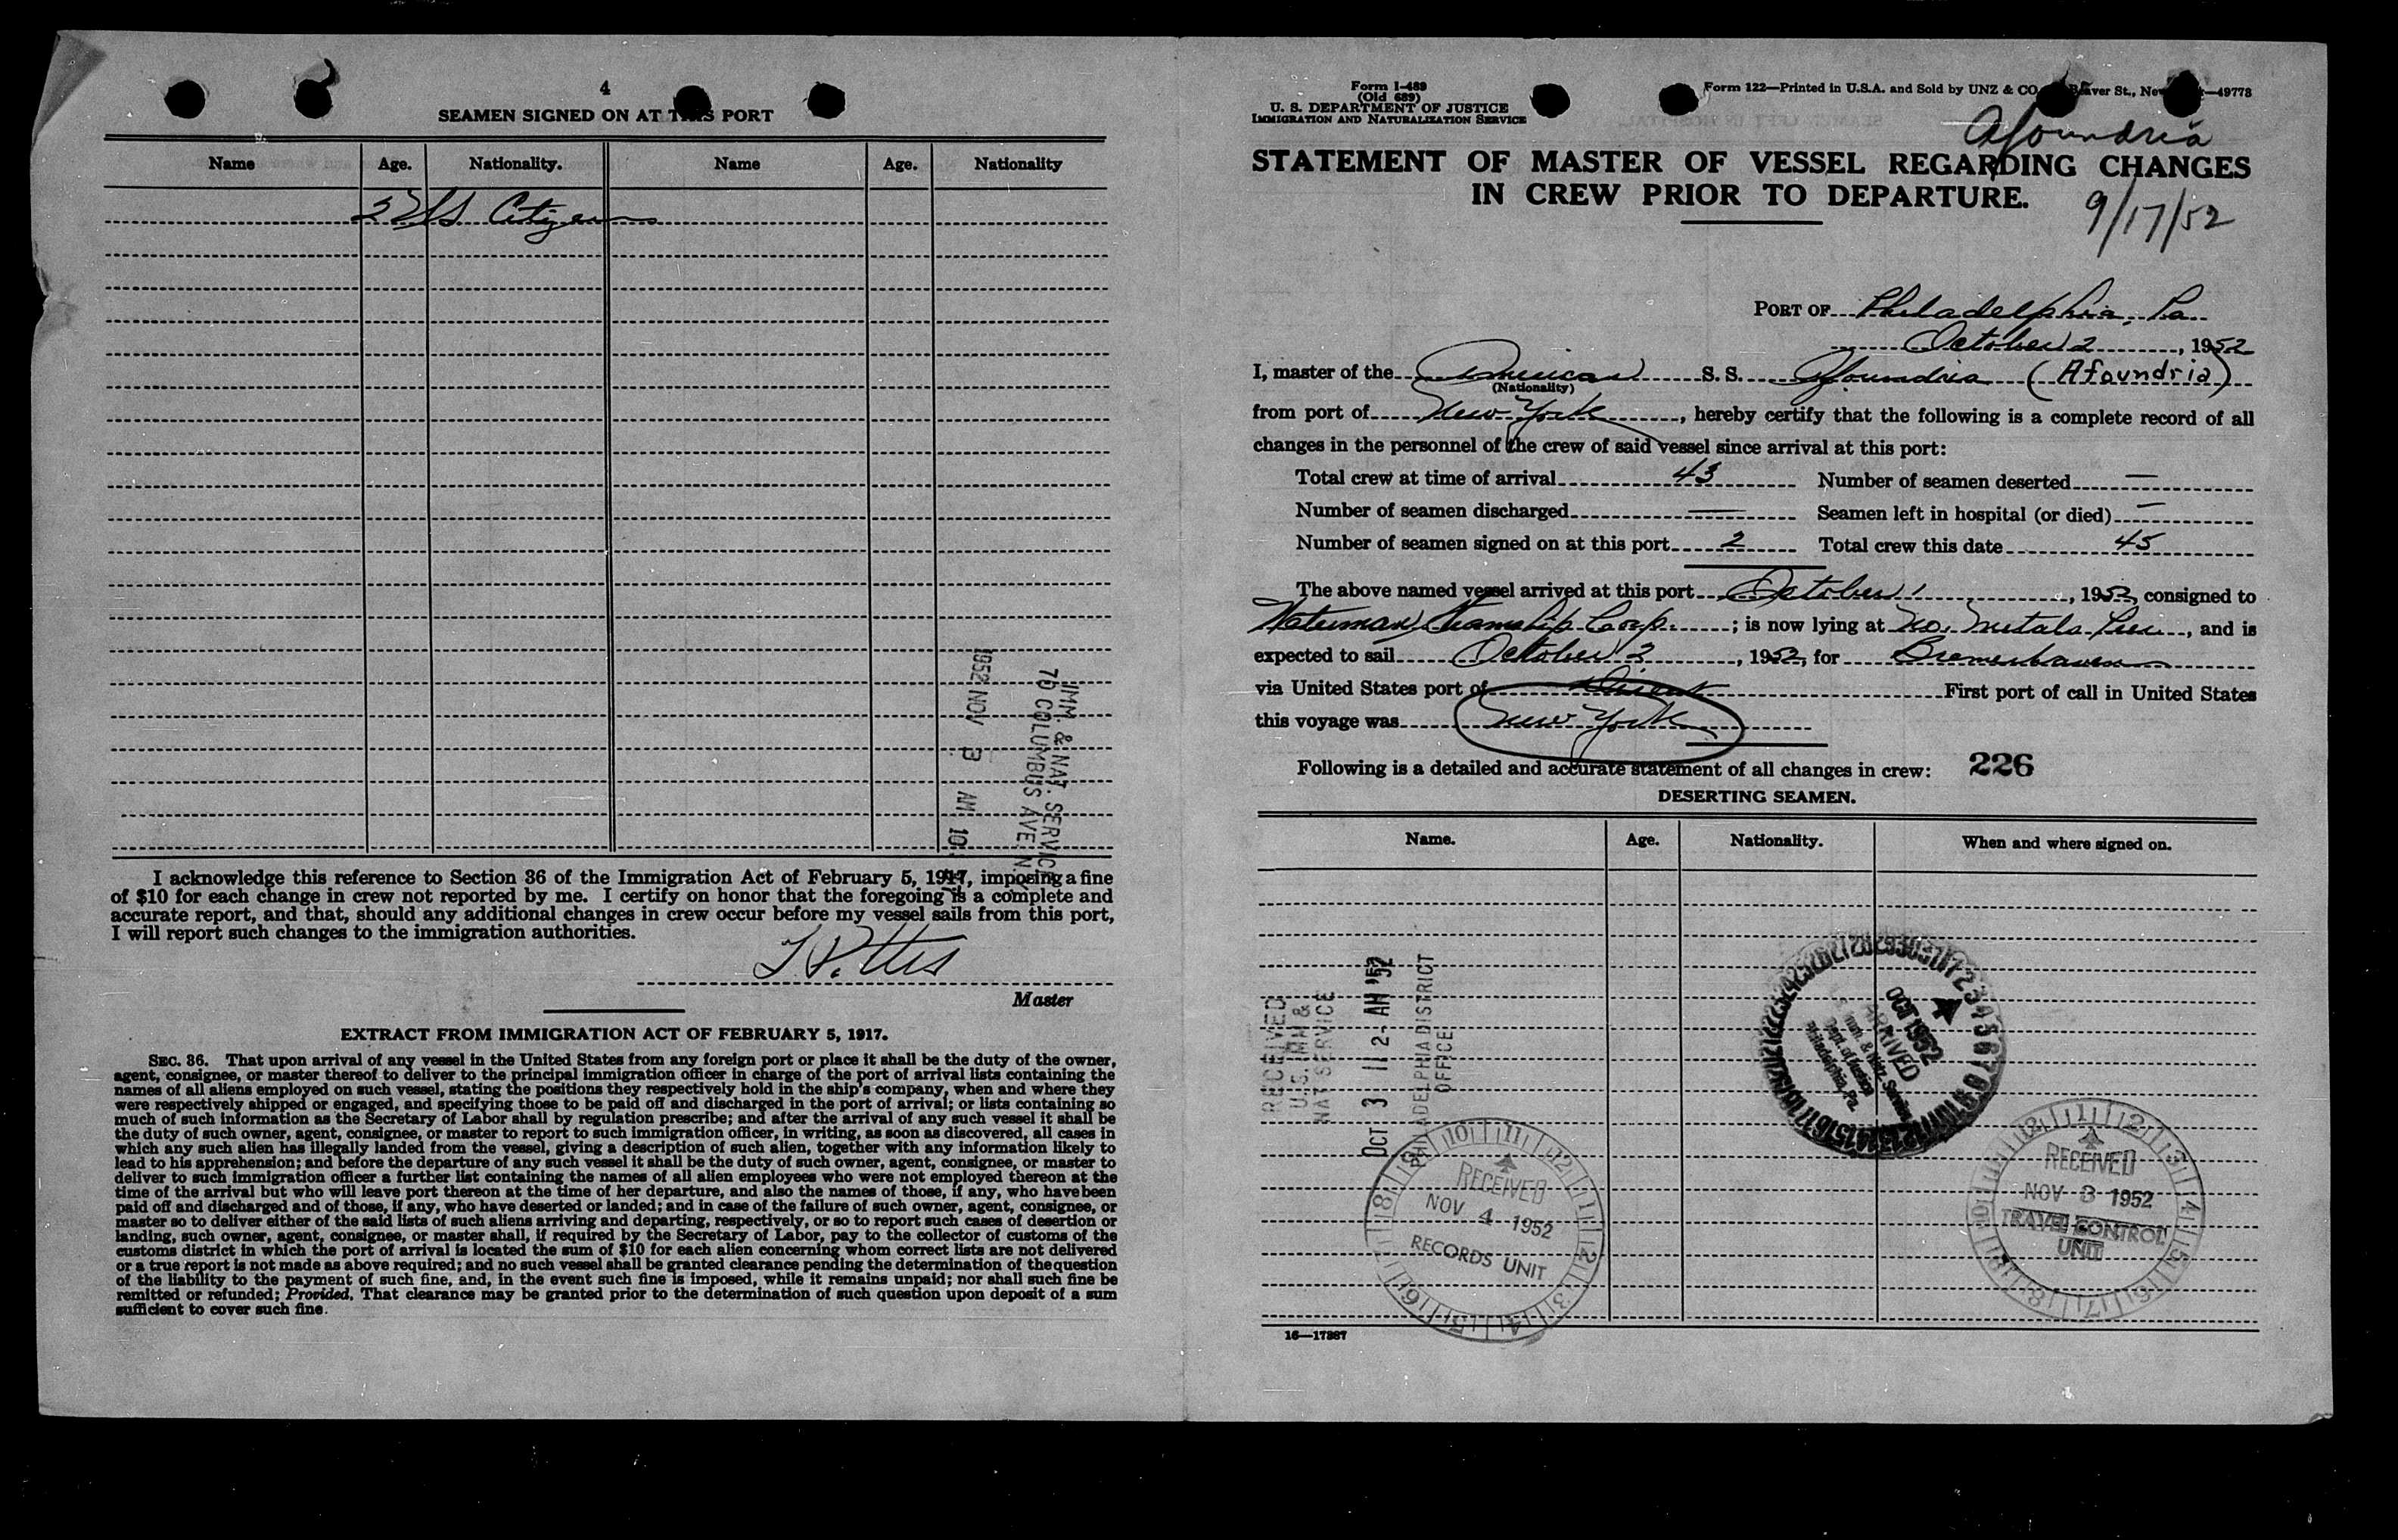 4
SEAMEN SIGNED ON AT THIS PORT
Name Age. Nationality. Name Age. Nationality
2 U.S. Citizens
IMM. & NAT. SERVICE
70 COLUMBUS AVE. N.Y.
1952 NOV 3 AM 10:
I acknowledge this reference to Section 36 of the Immigration Act of February 5, 1917, imposing a fine
of $10 for each change in crew not reported by me. I certify on honor that the foregoing is a complete and
accurate report, and that, should any additional changes in crew occur before my vessel sails from this port,
I will report such changes to the immigration authorities.
Master
EXTRACT FROM IMMIGRATION ACT OF FEBRUARY 5, 1917.
SEC. 36. That upon arrival of any vessel in the United States from any foreign port or place it shall be the duty of the owner,
agent, consignee, or master thereof to deliver to the principal immigration officer in charge of the port of arrival lists containing the
names of all aliens employed on such vessel, stating the positions they respectively hold in the ship's company, when and where they
were respectively shipped or engaged, and specifying those to be paid off and discharged in the port of arrival; or lists containing so
much of such information as the Secretary of Labor shall by regulation prescribe; and after the arrival of any such vessel it shall be
the duty of such owner, agent, consignee, or master to report to such immigration officer, in writing, as soon as discovered, all cases in
which any such alien has illegally landed from the vessel, giving a description of such alien, together with any information likely to
lead to his apprehension; and before the departure of any such vessel it shall be the duty of such owner, agent, consignee, or master to
deliver to such immigration officer a further list containing the names of all alien employees who were not employed thereon at the
time of the arrival but who will leave port thereon at the time of her departure, and also the names of those, if any, who have been
paid off and discharged and of those, if any, who have deserted or landed; and in case of the failure of such owner, agent, consignee, or
master so to deliver either of the said lists of such aliens arriving and departing, respectively, or so to report such cases of desertion or
landing, such owner, agent, consignee, or master shall, if required by the Secretary of Labor, pay to the collector of customs of the
customs district in which the port of arrival is located the sum of $10 for each alien concerning whom correct lists are not delivered
or a true report is not made as above required; and no such vessel shall be granted clearance pending the determination of the question
of the liability to the payment of such fine, and, in the event such fine is imposed, while it remains unpaid; nor shall such fine be
remitted or refunded; Provided, That clearance may be granted prior to the determination of such question upon deposit of a sum
sufficient to cover such fine.
Form I-489
(Old 689)
U. S. DEPARTMENT OF JUSTICE
IMMIGRATION AND NATURALIZATION SERVICE
Form 122—Printed in U.S.A. and Sold by UNZ & CO. Beaver St., New —49778
Afoundria
STATEMENT OF MASTER OF VESSEL REGARDING CHANGES
IN CREW PRIOR TO DEPARTURE.
9/17/52
PORT OF Philadelphia, Pa
October 2, 1952
I, master of the American S. S. Afoundria (Afoundria)
(Nationality)
from port of New York, hereby certify that the following is a complete record of all
changes in the personnel of the crew of said vessel since arrival at this port:
Total crew at time of arrival 43 Number of seamen deserted —
Number of seamen discharged — Seamen left in hospital (or died) —
Number of seamen signed on at this port 2 Total crew this date 45
The above named vessel arrived at this port October 1, 1952, consigned to
Waterman Steamship Corp. ; is now lying at No. Metals Pier, and is
expected to sail October 2, 1952, for Bremerhaven
via United States port of Direct First port of call in United States
this voyage was New York
Following is a detailed and accurate statement of all changes in crew: 226
DESERTING SEAMEN.
Name. Age. Nationality. When and where signed on.
RECEIVED
U.S. IMM &
NAT SERVICE
OCT 3 11 2- AM '52
PHILADELPHIA DISTRICT
OFFICE
OCT 1952
ARRIVED
Imm. & Natz. Service
Dept. of Justice
Philadelphia, Pa.
RECEIVED
NOV 4 1952
RECORDS UNIT
RECEIVED
NOV 3 1952
TRAVEL CONTROL
UNIT
16—17387